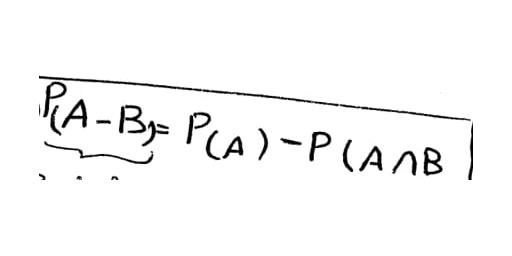 P(A-B)= P(A)-P(A∩B